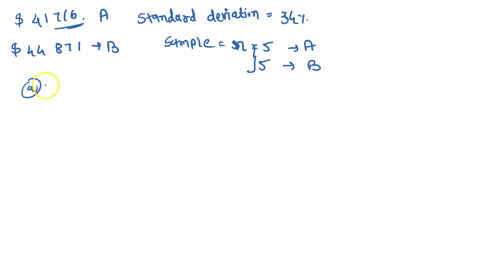 $ 41716. A Standard deviation = 34%.
$ 44 871 → B Sample = n = 5 → A
5 → B
a)